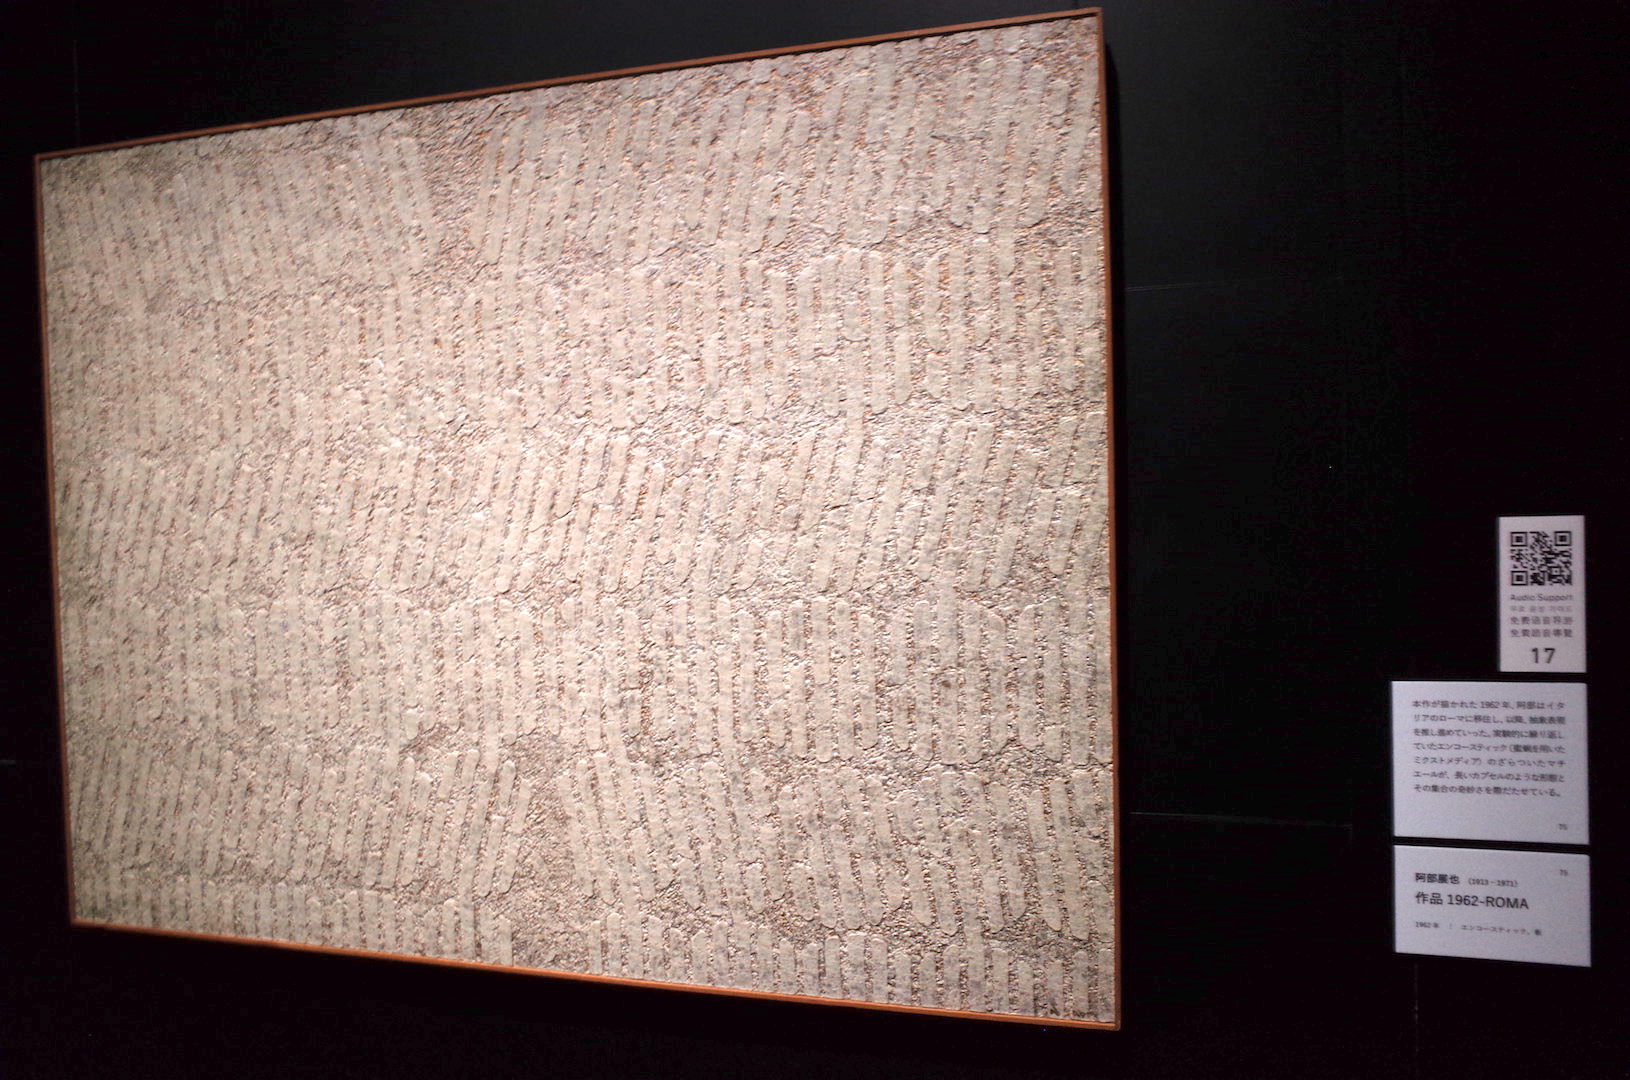 Audio Support
무료 음성 가이드
免费语音导游
免費語音導覽
17
本作が描かれた1962年、阿部はイタ
リアのローマに移住し、以降、抽象表現
を推し進めていった。実験的に繰り返し
ていたエンコースティック（蜜蝋を用いた
ミクストメディア）のざらついたマチ
エールが、長いカプセルのような形態と
その集合の奇妙さを際だたせている。
75
75
阿部展也 （1913－1971）
作品 1962-ROMA
1962年 / エンコースティック、板